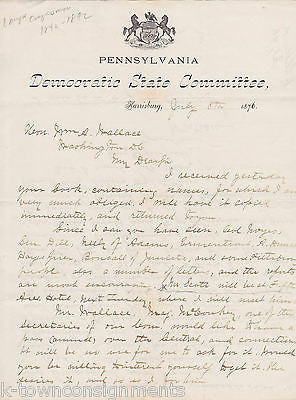 PENNSYLVANIA
Democratic State Committee,
Harrisburg, July 8th 1876.
Hon. Wm. S. Wallace
Washington DC
My Dear Sir
I received yesterday
your book, containing names, for which I am
very much obliged. I will have it copied
immediately, and returned to you.
Since I saw you have seen, Col Noyes,
Sen. Dill, Neely of Adams,
of Juniata, and some
people, also a number of letters, and the reports
are most encouraging. Mr Scott will be at
Hotel, next Tuesday, where I will meet him.
Mr. Wallace, Maj. one of the
secretaries of our Com. would like to have a
pass (annual) over the Central, and connections
It will be no use for me to ask for it. Would
you be willing to interest yourself to get it. He
desires it, and as I
k-townconsignments